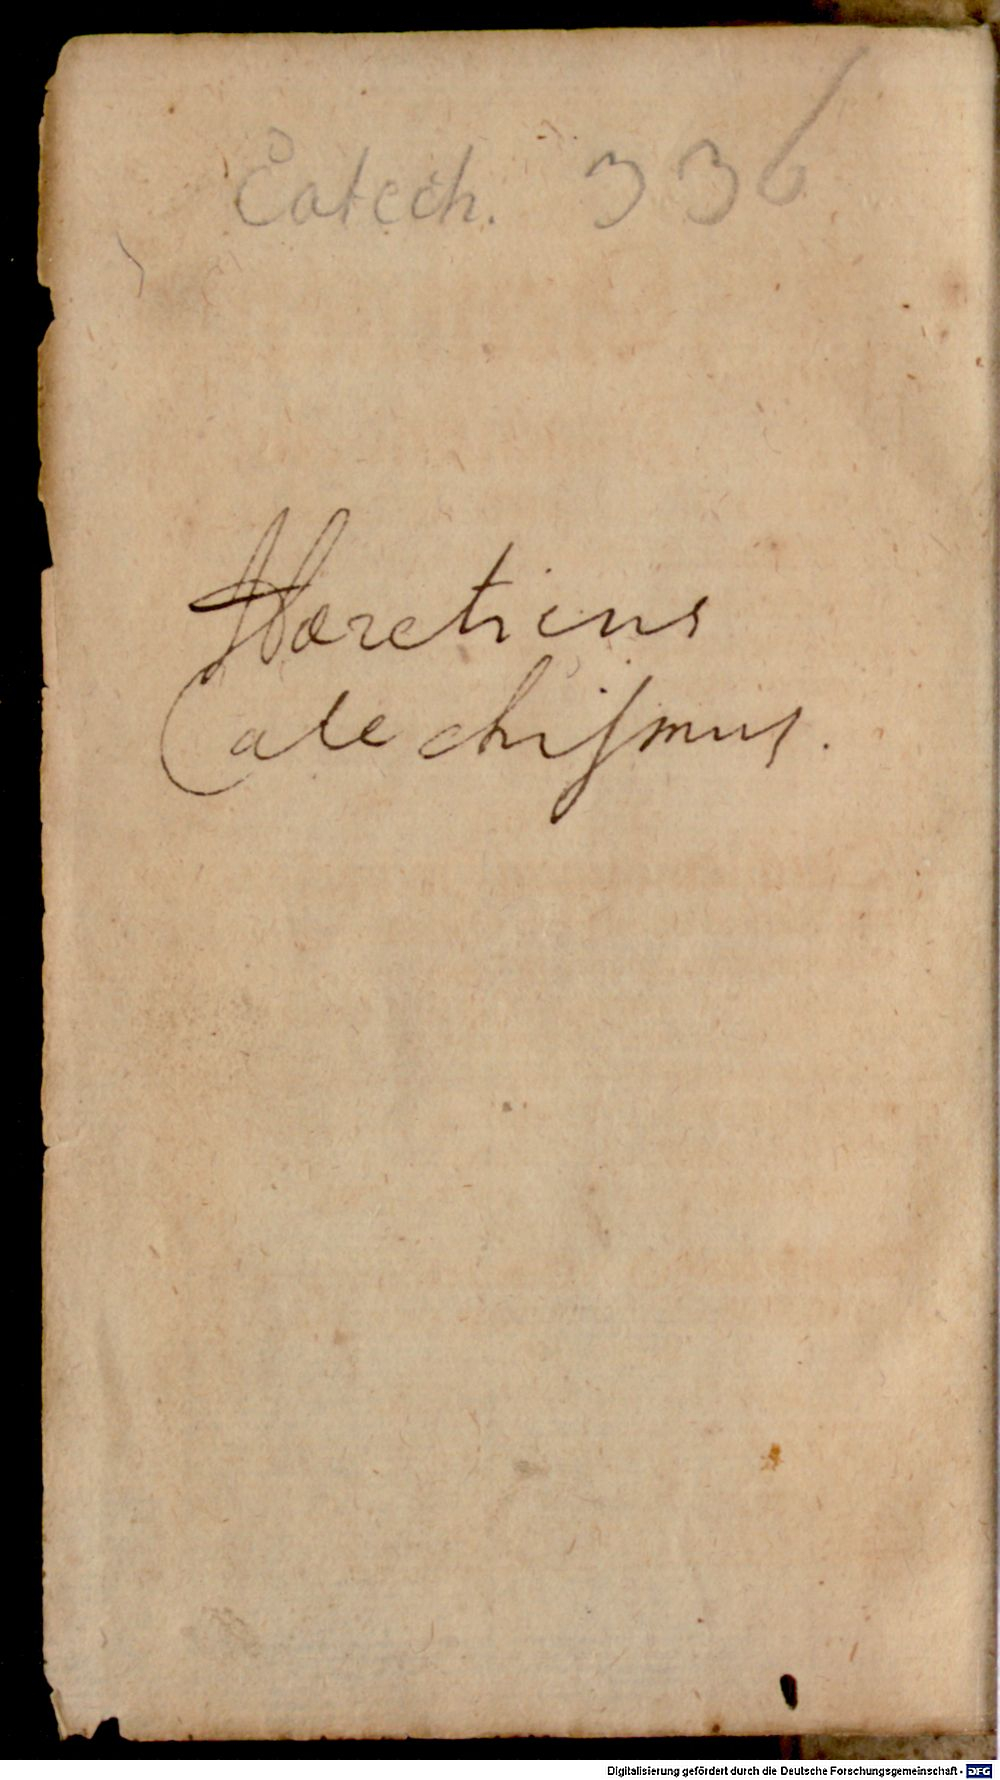 Catech. 336
Haereticus
Catechiſmus.
Digitalisierung gefördert durch die Deutsche Forschungsgemeinschaft - DFG